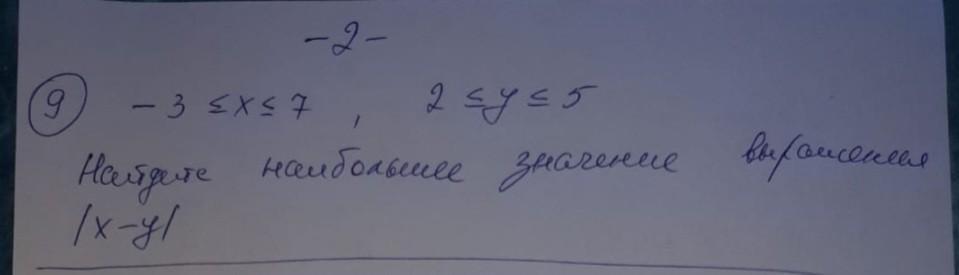 -2-
9 -3 ≤ x ≤ 7 , 2 ≤ y ≤ 5
Найдите наибольшее значение выражения
|x-y|